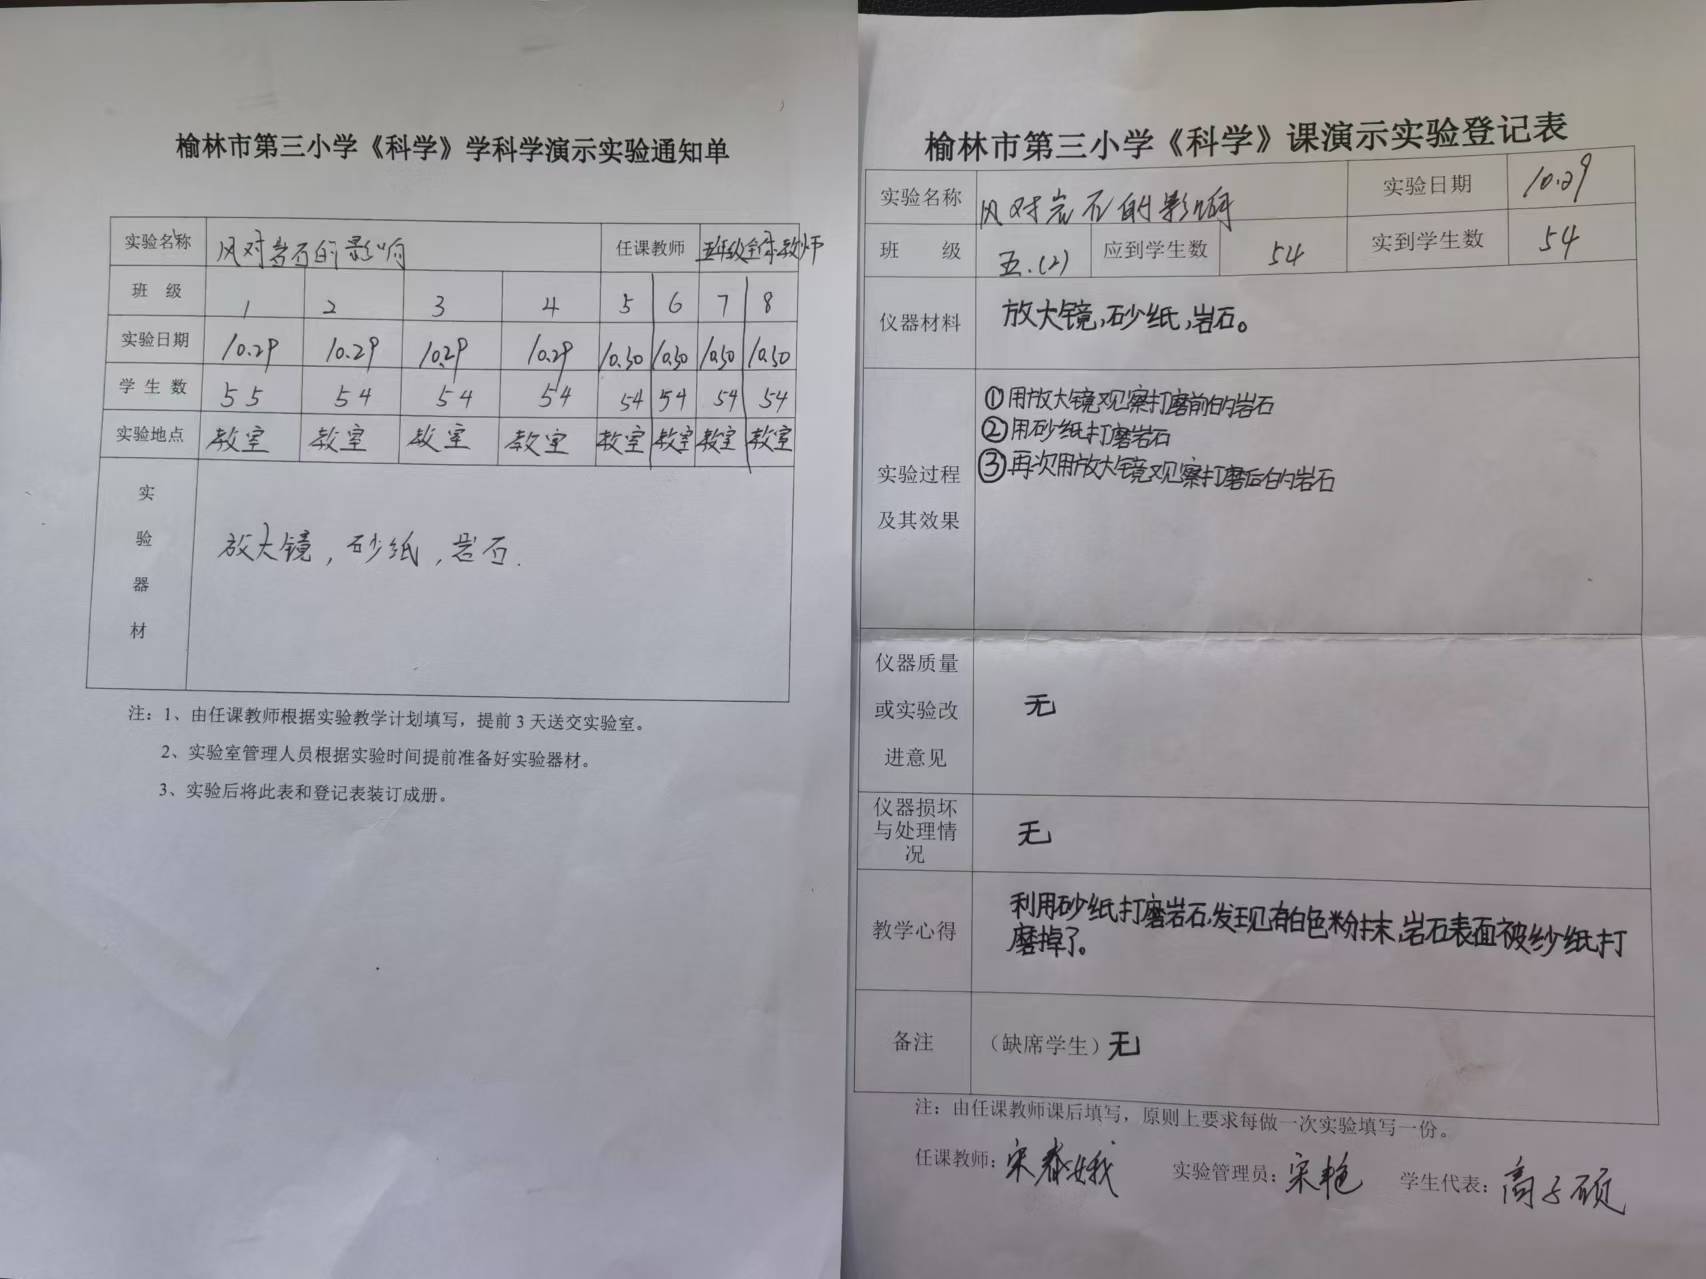 榆林市第三小学《科学》学科学演示实验通知单
实验名称 风对岩石的影响 任课教师 五年级全体教师
班 级 1 2 3 4 5 6 7 8
实验日期 10.29 10.29 10.29 10.29 10.30 10.30 10.30 10.30
学 生 数 55 54 54 54 54 54 54 54
实验地点 教室 教室 教室 教室 教室 教室 教室 教室
实验器材 放大镜，砂纸，岩石.
注：1、由任课教师根据实验教学计划填写，提前3天送交实验室。
2、实验室管理人员根据实验时间提前准备好实验器材。
3、实验后将此表和登记表装订成册。
榆林市第三小学《科学》课演示实验登记表
实验名称 风对岩石的影响 实验日期 10.29
班 级 五.(2) 应到学生数 54 实到学生数 54
仪器材料 放大镜,砂纸,岩石。
实验过程
及其效果
①用放大镜观察打磨前的岩石
②用砂纸打磨岩石
③再次用放大镜观察打磨后的岩石
仪器质量
或实验改
进意见
无
仪器损坏
与处理情
况
无
教学心得
利用砂纸打磨岩石,发现有白色粉末,岩石表面被纱纸打
磨掉了。
备注 （缺席学生）无
注：由任课教师课后填写，原则上要求每做一次实验填写一份。
任课教师: 宋春娥 实验管理员: 宋艳 学生代表: 高子硕